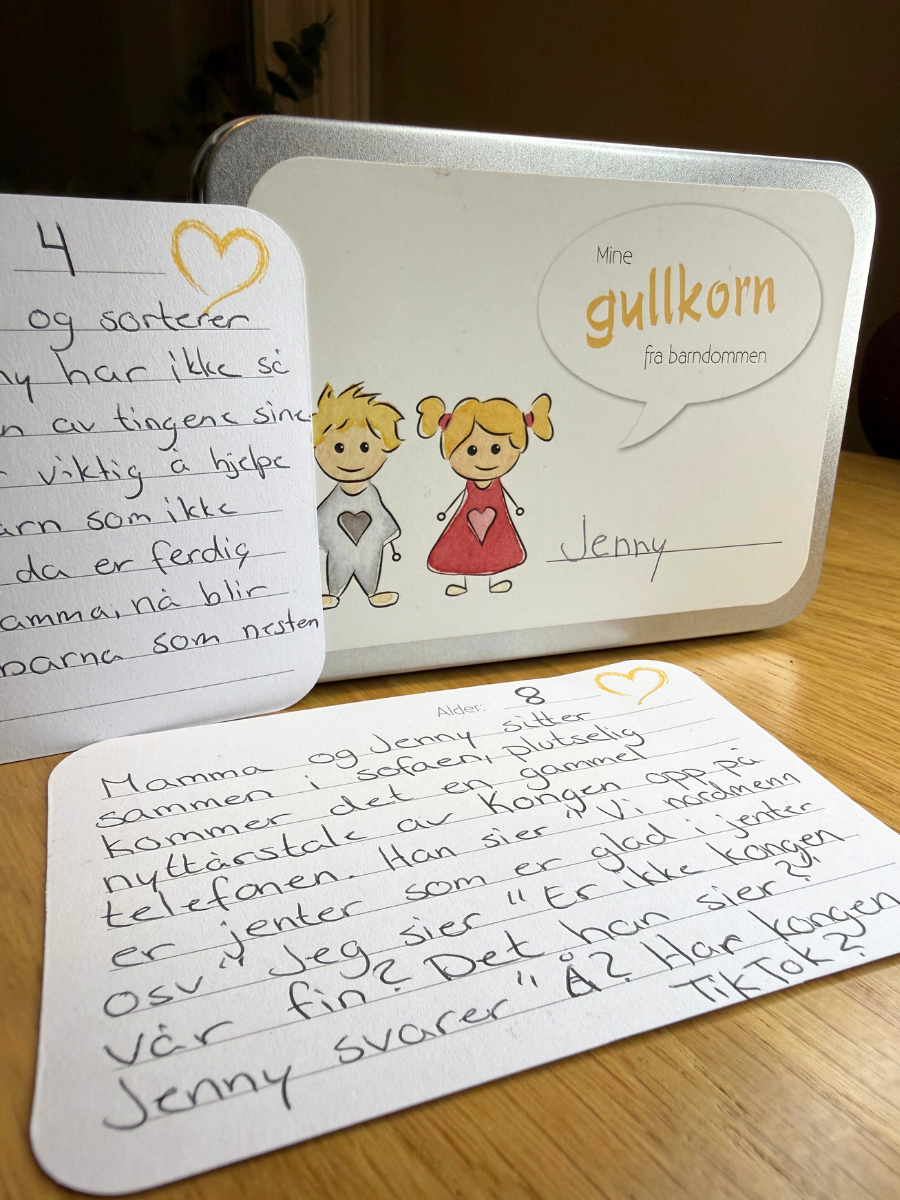 4
og sorterer
ny har ikke så
n av tingene sine
viktig å hjelpe
arn som ikke
da er ferdig
amma, nå blir
barna som nesten
Mine
gullkorn
fra barndommen
Jenny
Alder: 8
Mamma og Jenny sitter
sammen i sofaen, plutselig
kommer det en gammel
nyttårstale av Kongen opp på
telefonen. Han sier " Vi nordmenn
er jenter som er glad i jenter
osv" Jeg sier "Er ikke kongen
vår fin? Det han sier?"
Jenny svarer "Å? Har kongen
TikTok?